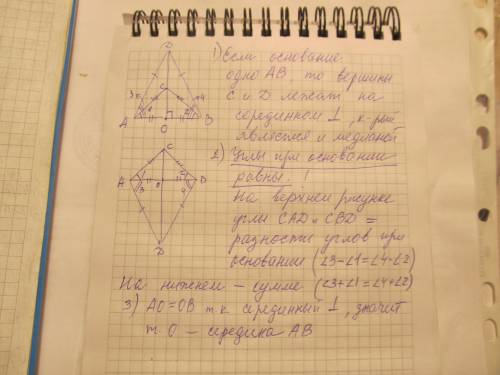 D
C
3 4
1 2
A O B
1) Если основание
одно AB, то вершины
C и D лежат на
серединном ⊥, к-рый
является и медианой
2) Углы при основании
равны!
На верхнем рисунке
углы CAD и CBD =
разности углов при
основании (∠3-∠1=∠4-∠2)
C
A 1 2 D
3 4
D
На нижнем – сумме (∠3+∠1=∠4+∠2)
3) AO=OB т.к. серединный ⊥, значит
т. O – середина AB